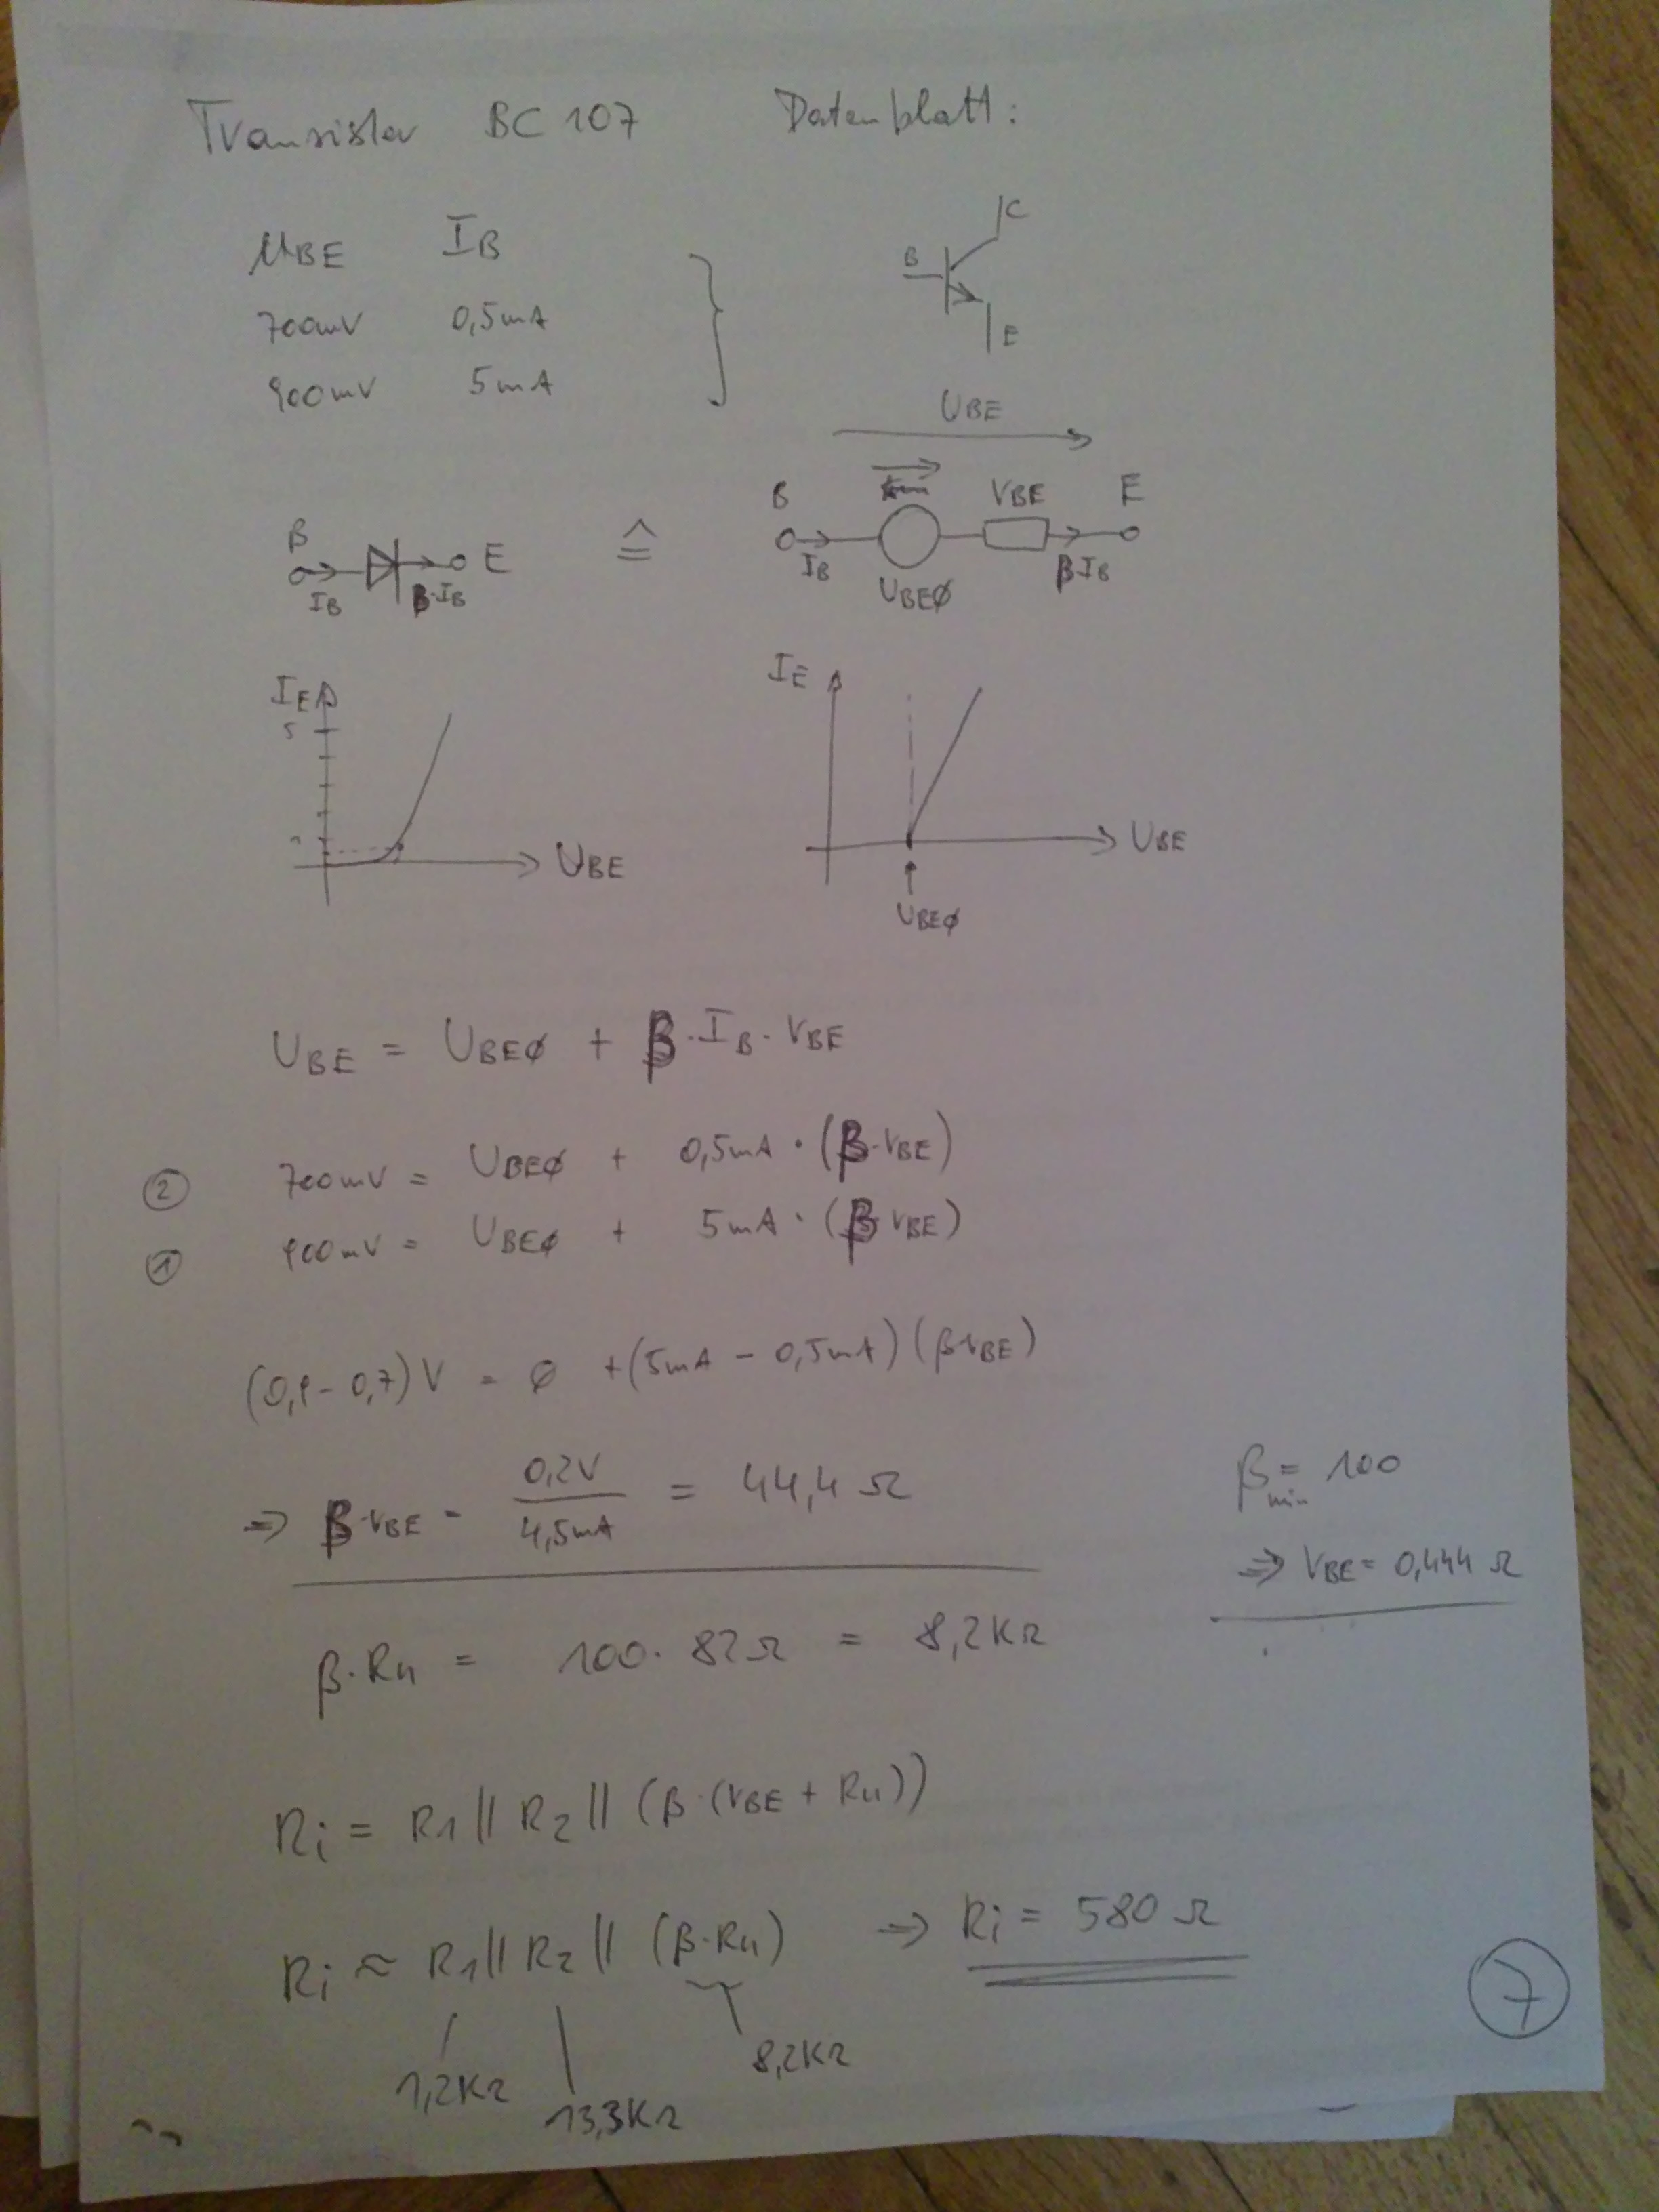 Transistor BC 107 Datenblatt:
UBE IB
700mV 0,5mA
900mV 5mA
C
B
E
UBE
B IB β·IB E
≙
B IB UBEØ rBE β·IB E
IE
5
1
UBE
IE
UBE
UBEØ
UBE = UBEØ + β·IB·rBE
② 700mV = UBEØ + 0,5mA·(β·rBE)
① 900mV = UBEØ + 5mA·(β·rBE)
(0,9-0,7)V = Ø +(5mA - 0,5mA)(β·rBE)
⇒ β·rBE = 0,2V / 4,5mA = 44,4 Ω
βmin = 100
⇒ rBE = 0,444 Ω
β·R4 = 100·82Ω = 8,2KΩ
Ri = R1 || R2 || (β·(rBE + R4))
Ri ≈ R1 || R2 || (β·R4) ⇒ Ri = 580 Ω
1,2KΩ 13,3KΩ 8,2KΩ
7